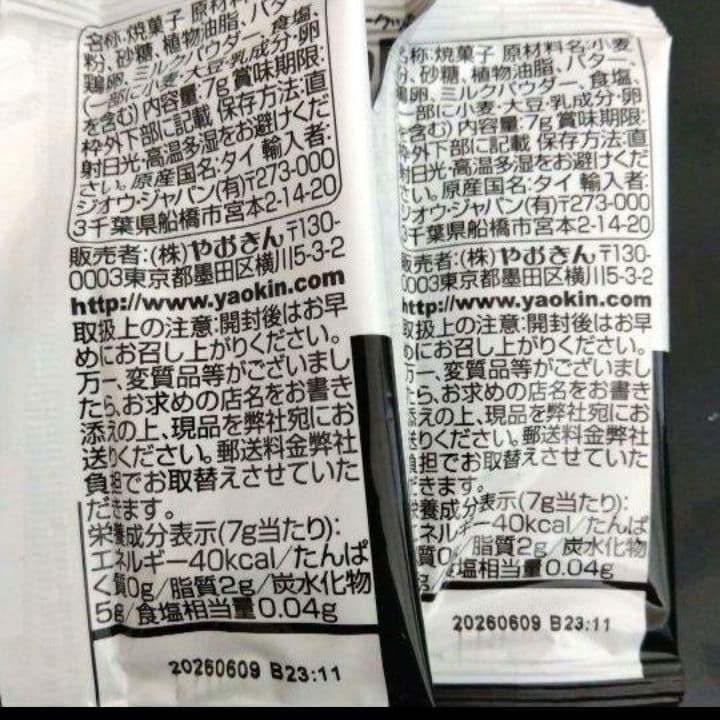 名称:焼菓子 原材料名:小麦
粉、砂糖、植物油脂、バター、
鶏卵、ミルクパウダー、食塩、
(一部に小麦・大豆・乳成分・卵
を含む) 内容量:7g 賞味期限:
枠外下部に記載 保存方法:直
射日光・高温多湿をお避けくだ
さい。原産国名:タイ 輸入者:
ジオウ・ジャパン(有)〒273-000
3千葉県船橋市宮本2-14-20
販売者:(株)やおきん 〒130-
0003東京都墨田区横川5-3-2
http://www.yaokin.com
取扱上の注意:開封後はお早
めにお召し上がりください。
万一、変質品等がございまし
たら、お求めの店名をお書き
添えの上、現品を弊社宛にお
送りください。郵送料金弊社
負担でお取替えさせていた
だきます。
栄養成分表示(7g当たり):
エネルギー40kcal/たんぱ
く質0g/脂質2g/炭水化物
5g/食塩相当量0.04g
20260609 B23:11
名称:焼菓子 原材料名:小麦
粉、砂糖、植物油脂、バター、
鶏卵、ミルクパウダー、食塩、
一部に小麦・大豆・乳成分・卵
を含む) 内容量:7g 賞味期限:
枠外下部に記載 保存方法:直
射日光・高温多湿をお避けくだ
さい。原産国名:タイ 輸入者:
ジオウ・ジャパン(有)〒273-000
3千葉県船橋市宮本2-14-20
販売者:(株)やおきん 〒130-
0003東京都墨田区横川5-3-2
http://www.yaokin.com
取扱上の注意:開封後はお早
めにお召し上がりください。
万一、変質品等がございまし
たら、お求めの店名をお書き
添えの上、現品を弊社宛にお
送りください。郵送料金弊社
負担でお取替えさせていた
だきます。
栄養成分表示(7g当たり):
エネルギー40kcal/たんぱ
質0 脂質2g/炭水化物
g/食塩相当量0.04g
20260609 B23:11